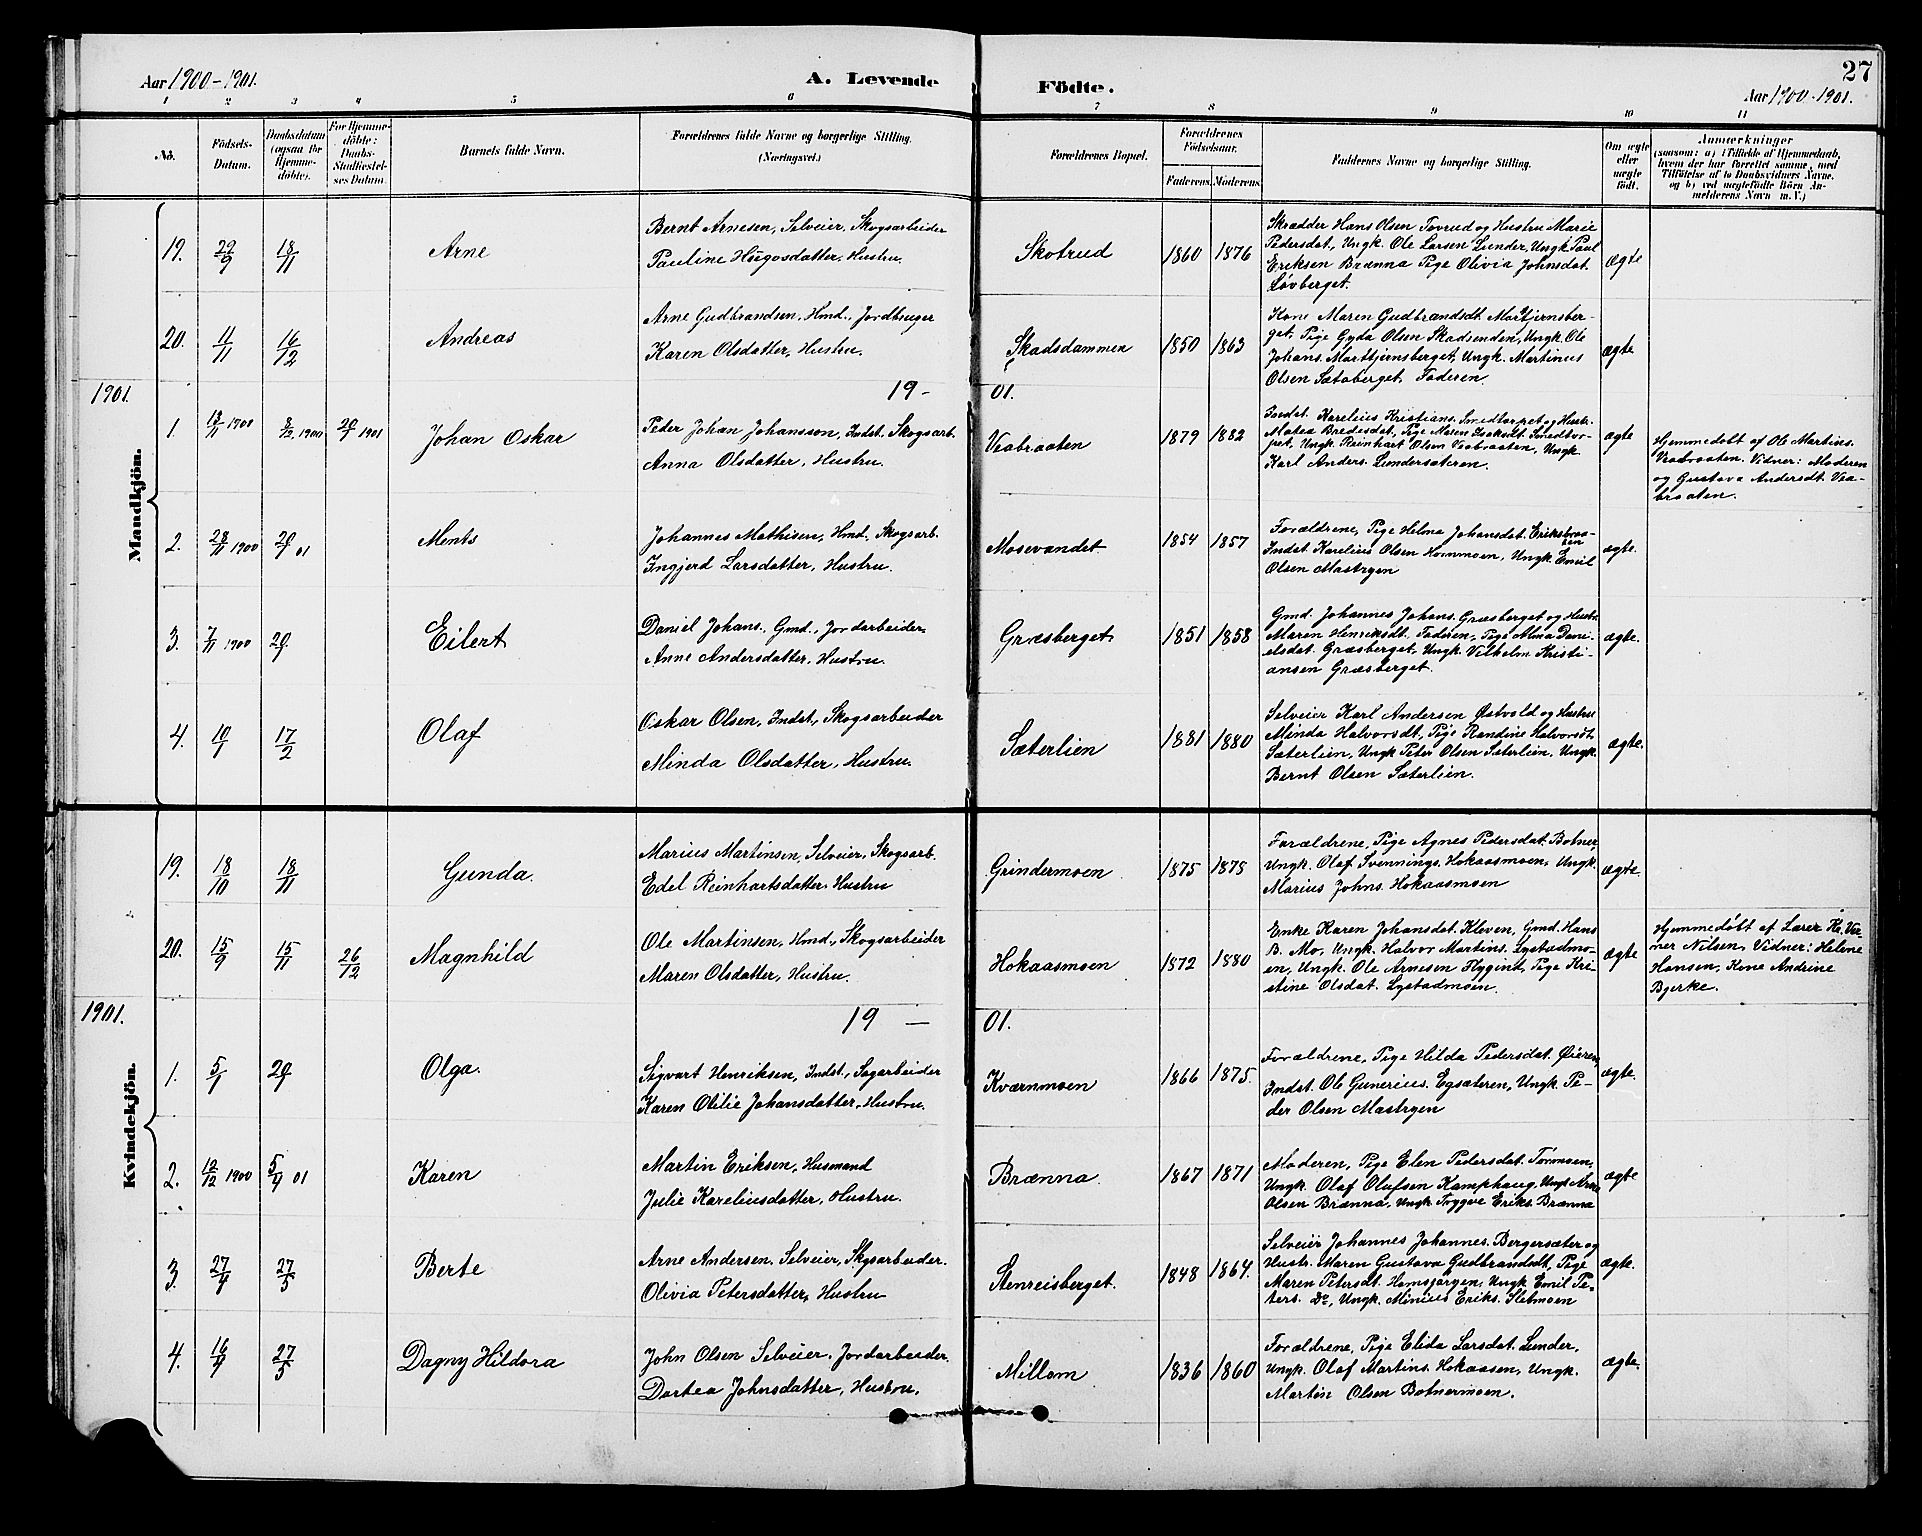 27
Aar 1900-1901.
A. Levende
Födte.
Aar 1900-1901.
1 2 3 4 5 6 7 8 9 10 11
No.
Födsels-
Datum.
Daabsdatum
(ogsaa for
Hjemme-
döbte).
For Hjemme-
döbte:
Daabs-
Stadfæstel-
ses Datum.
Barnets fulde Navn.
Forældrenes fulde Navne og borgerlige Stilling.
(Næringsvei.)
Forældrenes Bopæl.
Forældrenes
Födselsaar.
Faderens. Moderens.
Faddernes Navne og borgerlige Stilling.
Om ægte
eller
uægte
födt.
Anmærkninger
(saasom: a) i Tilfælde af Hjemmedaab,
hvem der har forrettet samme, med
Tilföielse af to Daabsvidners Navne.
og b) ved uægtefödte Börn An-
melderens Navn m. V.)
Mandkjön.
19. 29/9 18/11 Arne
Bernt Arnesen, Selveier, Skogsarbeider
Pauline Hugosdatter, Hustru.
Skotrud 1860 1876
Skrædder Hans Olsen Tovrud og Hustru Marie
Pedersdat, Ungk. Ole Larsen Lunder, Ungk Paul
Eriksen Brænna Pige Olivia Johnsdat.
Løvberget.
ægte
20. 11/11 16/12 Andreas
Arne Gudbrandsen, Hmd., Jordbruger
Karen Olsdatter, Hustru.
Skadsdammen 1850 1863
Kone Maren Gudbrandsdt. Martjernsber-
get, Pige Gyda Olsen Skadsenden, Ungk. Ole
Johans. Marttjernsberget, Ungk. Martinus
Olsen Sætaberget. Faderen.
ægte
1901. 19- 01.
1. 13/11 1900 8/12 1900 20/1 1901 Johan Oskar
Peder Johan Johansson, Indst. Skogsarb.
Anna Olsdatter, Hustru.
Vaabraaten 1879 1882
Indst. Karelius Kristians. Smedtorpet og Hustr.
Matea Bredesdat, Pige Maren Isaksdt. Smedtor-
pet, Ungk. Reinhart Olsen Vaabraaten, Ungk.
Karl Anders. Lundersæteren.
ægte
Hjemmedøbt af Ole Martins.
Vaabraaten. Vidner: Moderen
og Gustava Andersdt. Vaa-
braaten.
2. 28/11 1900 20/1 01 Ments
Johannes Mathisen, Hmd. Skogsarb.
Ingjerd Larsdatter, Hustru.
Mosevandet 1854 1857
Forældrene, Pige Helma Johansdat. Eriksbraa-
ten
Indst Karelius Olsen Hommoen, Ungk. Emil
Olsen Mastryen
ægte.
3. 7/11 1900 20/1 Eilert
Daniel Johans., Gmd., Jordarbeider.
Anne Andersdatter, Hustru.
Græsberget 1851 1858
Gmd. Johannes Johans. Græsberget og Hustr.
Maren Henriksdt. Faderen, Pige Alma Dani-
elsdat. Græsberget, Ungk. Vilhelm Kristi-
ansen Græsberget.
ægte.
4. 10/1 17/2 Olaf
Oskar Olsen, Indst., Skogsarbeider
Minda Olsdatter, Hustru.
Sæterlien 1881 1880
Selveier Karl Andersen Østvold og Hustru
Minda Halvorsdt, Pige Randine Halvorsdt.
Sæterlien, Ungk Peter Olsen Sæterlien, Ungk.
Bernt Olsen Sæterlien.
ægte.
Kvindekjön.
19. 18/10 18/11 Gunda.
Marius Martinsen, Selveier, Skogsarb.
Edel Reinhartsdatter. Hustru
Grindermoen 1875 1878
Forældrene, Pige Agnes Pedersdat. Botner
Ungk. Olaf Svennings. Hokaasmoen, Ungk.
Marius Johns. Hokaasmoen
ægte.
20. 15/9 15/11 26/12 Magnhild
Ole Martinsen, Hmd., Skogsarbeider
Maren Olsdatter, Hustru.
Hokaasmoen 1872 1880
Enke Karen Johansdat. Kleven, Gmd. Hans
B. Mo, Ungk. Halvor Martins. Lystadmo-
en, Ungk. Ole Arnesen Flygind, Pige Kri-
stine Olsdat. Lystadmoen.
ægte
Hjemmedøbt af Lærer
Nilsen, Vidner: Helene
Hansen, Kone Andrine
Bjerke.
1901. 19 - 01.
1. 5/1 20/1 Olga.
Sigvart Henriksen, Indst., Sagarbeider
Karen Otilie Johansdatter, Hustru.
Kværnmoen 1866 1875.
Forældrene, Pige Hilda Pedersdat. Øieren,
Indst. Ole Gunerius. Egsæteren, Ungk. Pe-
der Olsen Mastryen
ægte.
2. 12/12 1900 5/4 01 Karen
Martin Eriksen, Husmand
Julie Kareliusdatter, Hustru.
Brænna. 1867 1871
Moderen, Pige Elen Pedersdat. Tørmoen,
Ungk. Olaf Olufsen Kamphaug, Ungk Arne
Olsen Brænna, Ungk Tryggve Eriks. Brænna
ægte
3. 27/4 27/5 Berte
Arne Andersen. Selveier, Skgsarbeider.
Olivia Petersdatter, Hustru
Stenreisberget. 1848 1864.
Selveier Johannes Johannes. Bergersæter og
Hustr. Maren Gustava Gudbrandsdt, Pige
Maren Petersdt. Homsjørgen, Ungk Emil Pe-
ters. Do, Ungk. Minius Eriks. Sletmoen
ægte.
4. 16/4 27/5 Dagny Hildora
John Olsen Selveier. Jordarbeider.
Dortea Johnsdatter, Hustru.
Millom 1836 1860
Forældrene, Pige Elida Larsdat. Lunder,
Ungk. Olaf Martins. Hokaasen, Ungk.
Martin Olsen Botnermoen.
ægte.